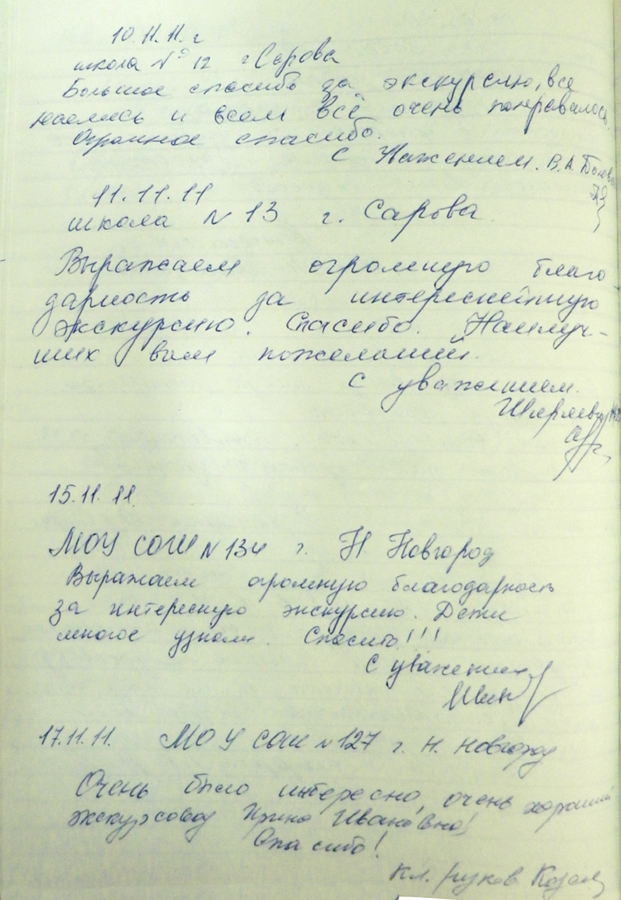 10.11.11 г
школа № 12 г Сарова
Большое спасибо за экскурсию, все
и всем всё очень понравилось.
Огромное спасибо.
С В.А.
11.11.11
школа N 13 г. Сарова
Выражаем огромную благо
дарность за интереснейшую
экскурсию. Спасибо. Наилуч-
ших вам пожеланий.
С уважением.
15.11.11.
МОУ СОШ N 134 г. Н. Новгород
Выражаем огромную благодарность
за интересную экскурсию. Дети
многое узнали. Спасибо!!!
С уважением
17.11.11. МОУ СОШ N 127 г. Н. Новгород
Очень было интересно, очень хороший
экскурсовод Ирина Ивановна!
Спасибо!
Кл. руков